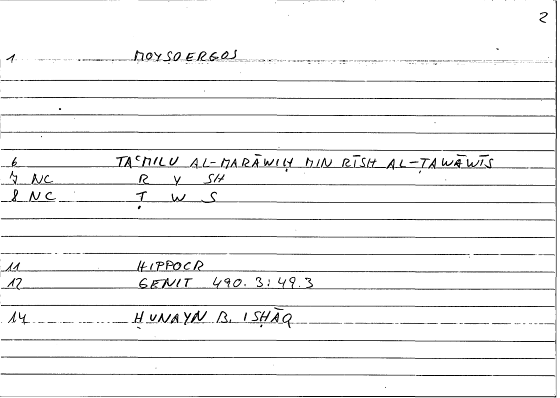 2
1 MOYSOERGOS
6 TAʿMILU AL-MARĀWIḤ MIN RĪSH AL-ṬAWĀWĪS
7 NC R Y SH
8 NC Ṭ W S
11 HIPPOCR
12 GENIT 490.3:49.3
14 ḤUNAYN B. ISḤĀQ